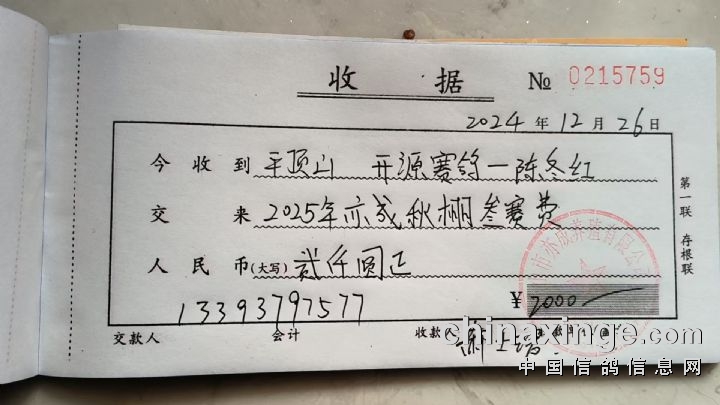 收 据 № 0215759
2024 年 12 月 26 日
今 收 到 平顶山 开源赛鸽一陈冬红
交 来 2025年亦成秋棚叁赛费
人 民 币(大写) 贰仟圆正
13393797577 ¥ 2000
交款人 会计 收款人
第一联 存根联
市亦成养殖有限公
chinaxinge.com
中国信鸽信息网